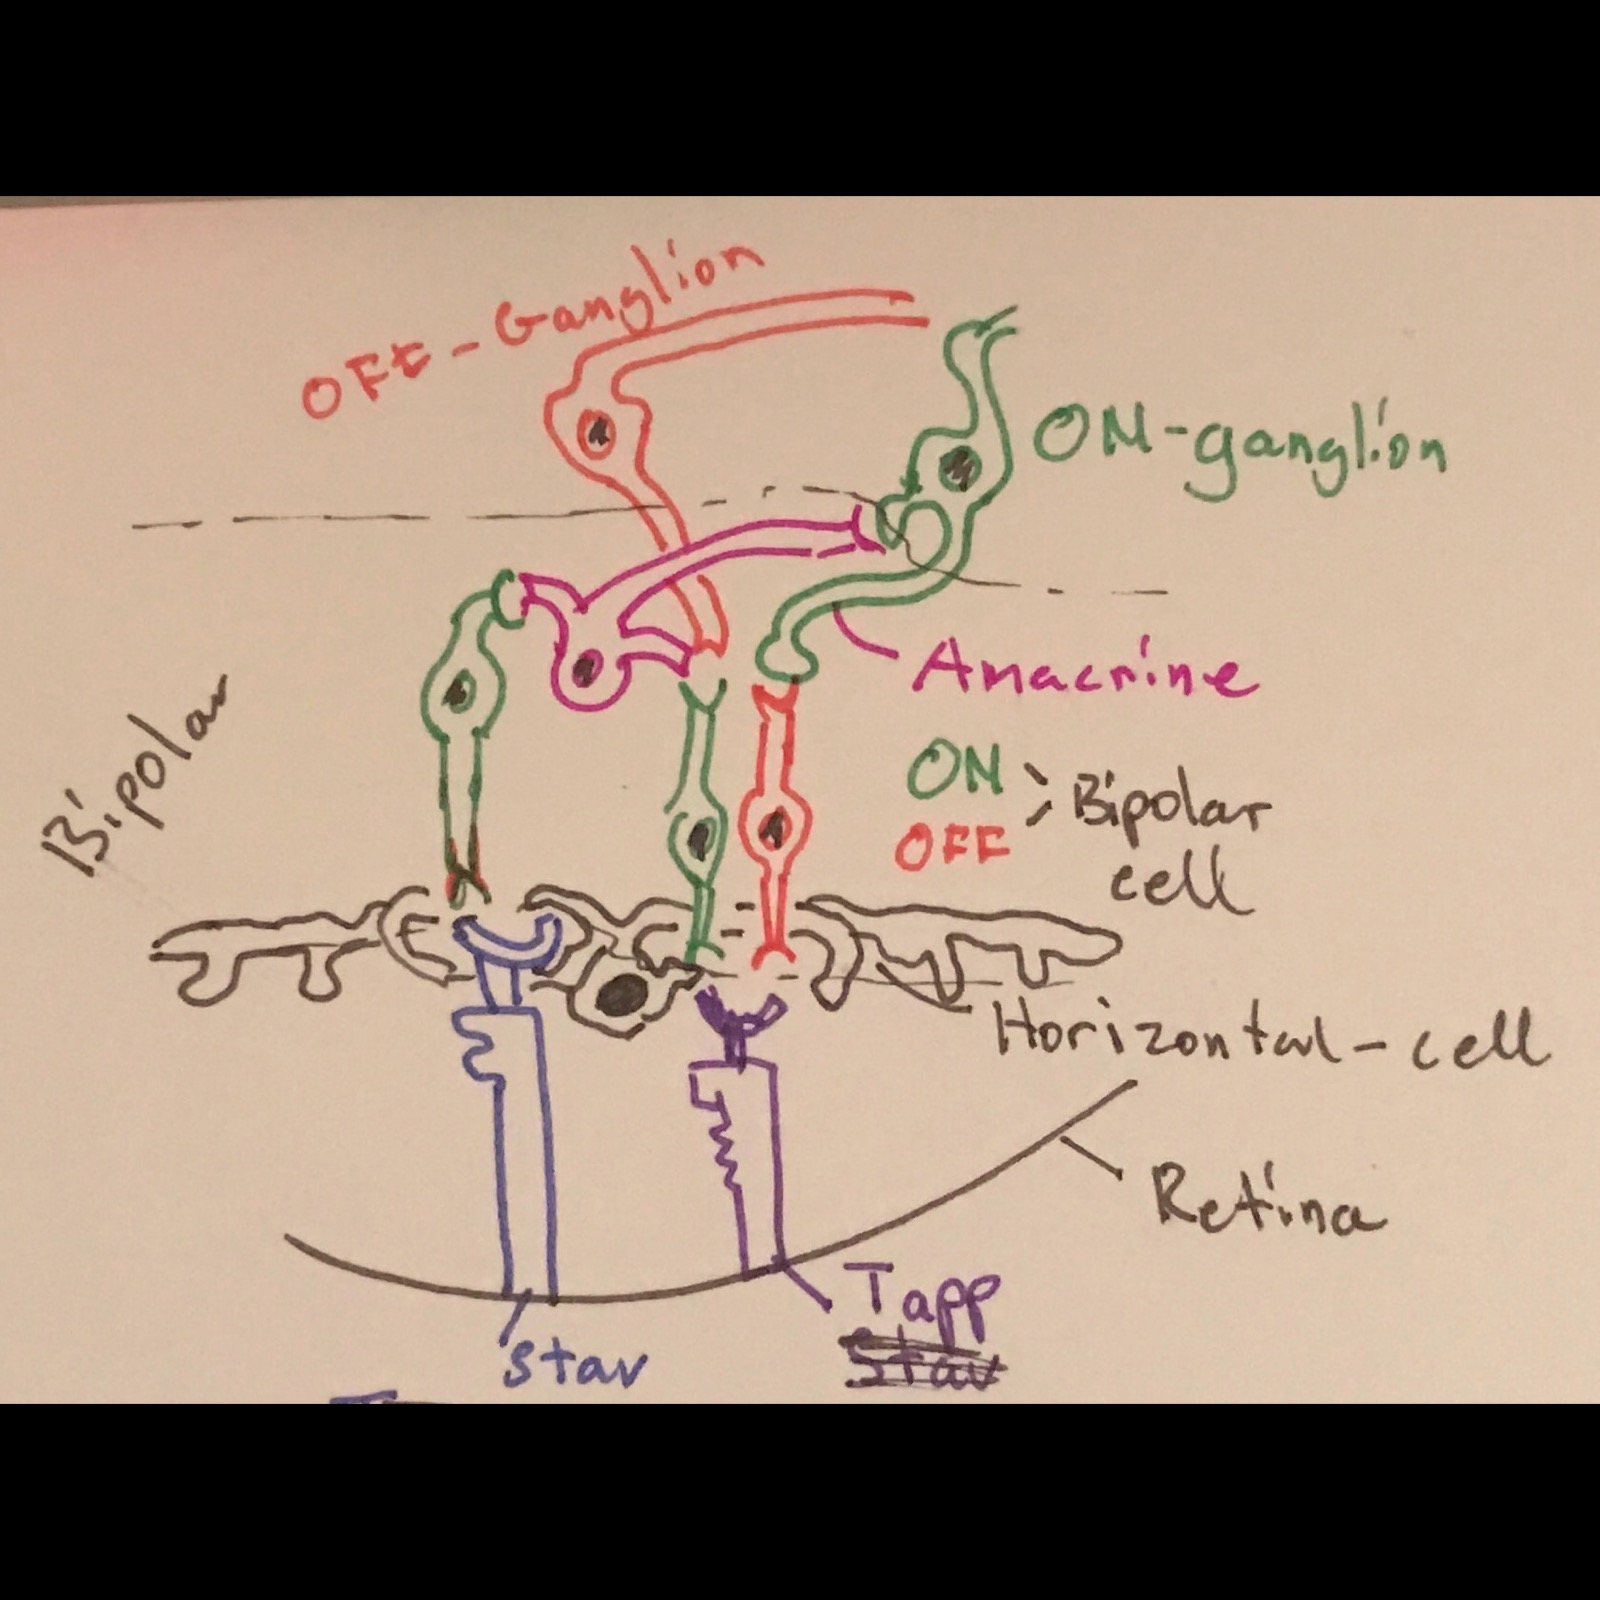 OFF-Ganglion
ON-ganglion
Anacrine
Bipolar
ON
OFF
Bipolar
cell
Horizontal-cell
Retina
Tapp
Stav
stav